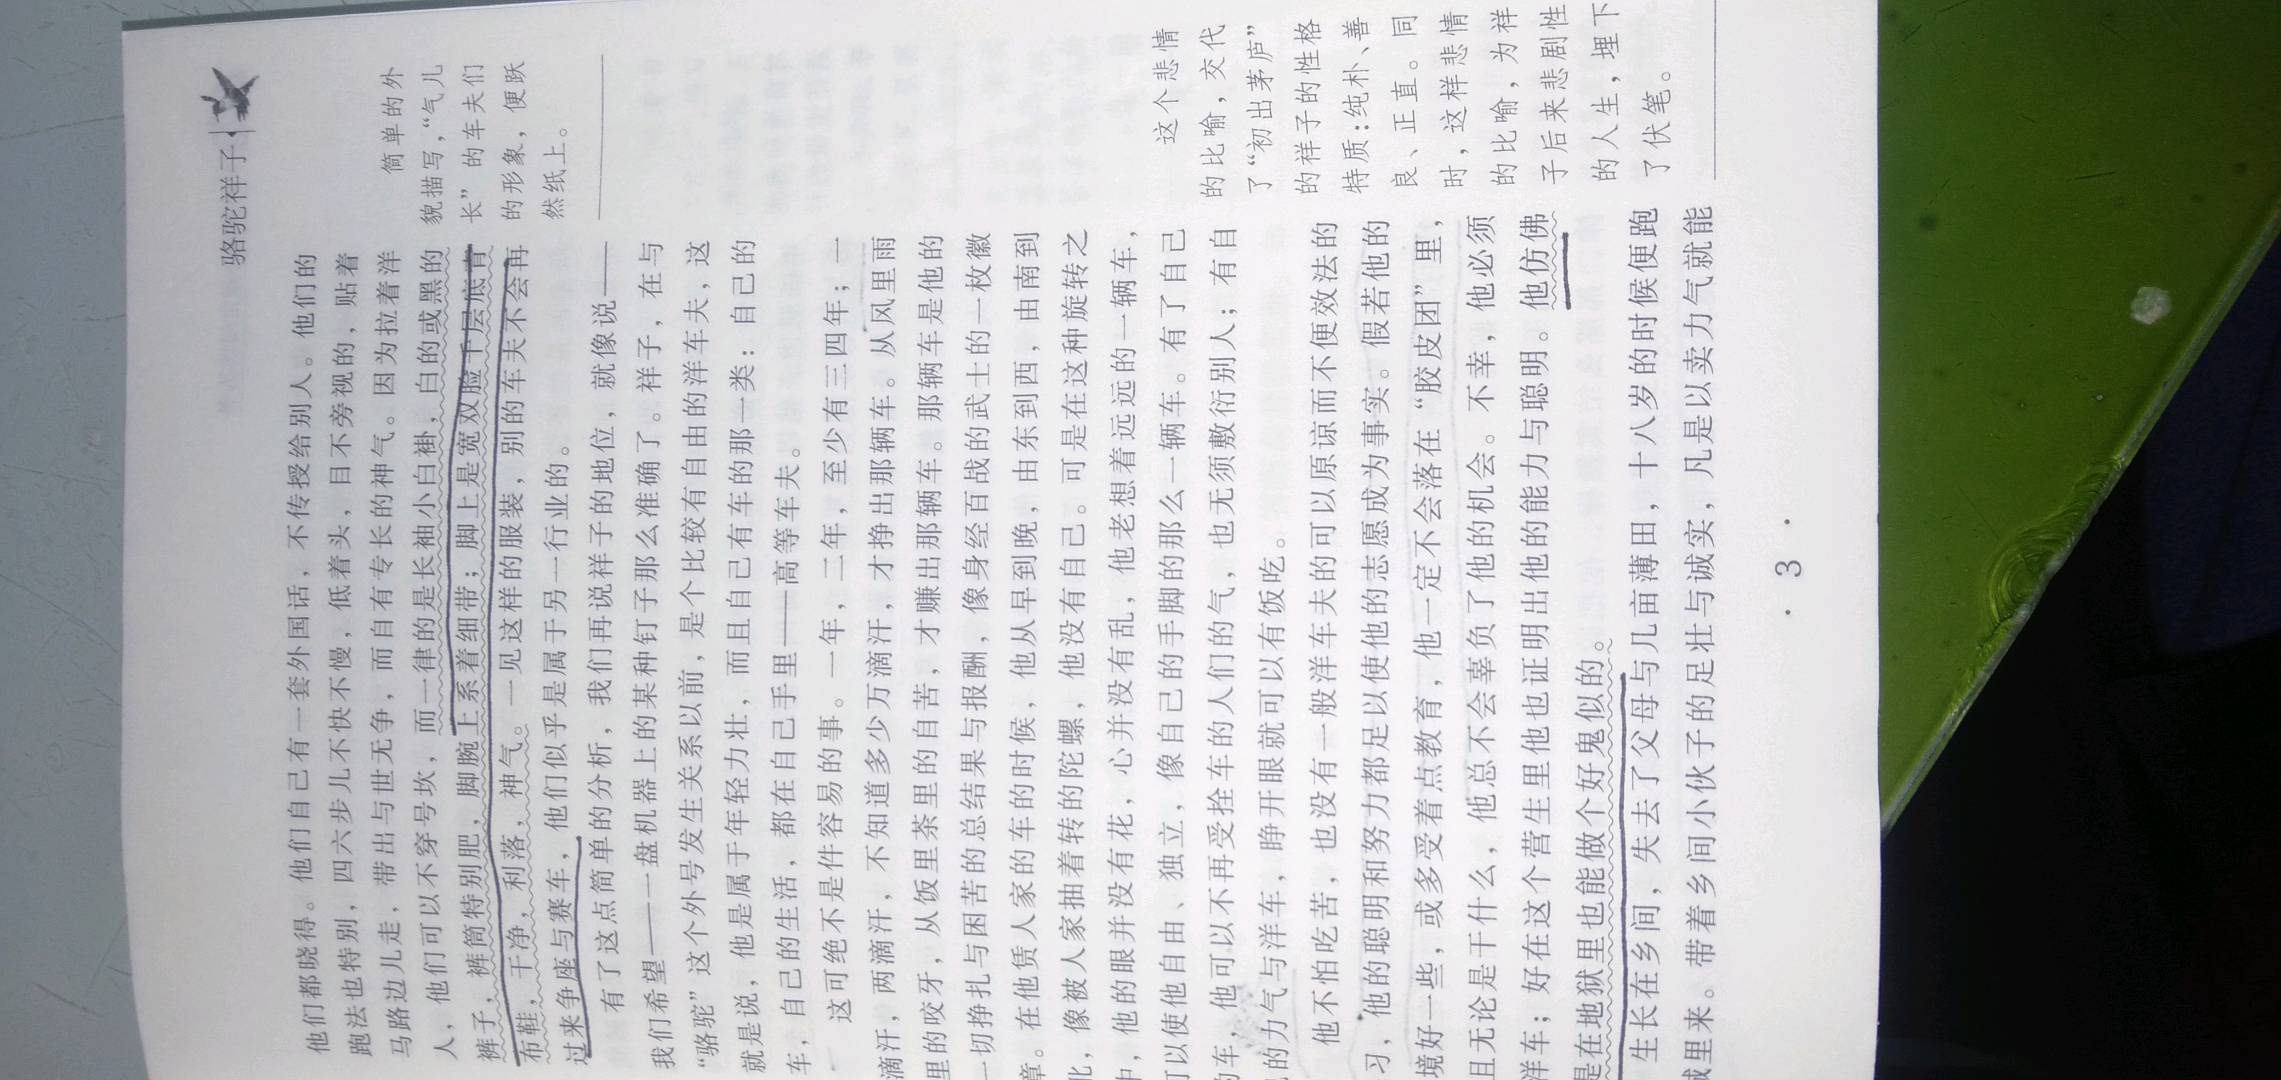 骆驼祥子
他们都晓得。他们自己有一套外国话，不传授给别人。他们的
跑法也特别，四六步儿不快不慢，低着头，目不旁视的，贴着
马路边儿走，带出与世无争，而自有专长的神气。因为拉着洋
人，他们可以不穿号坎，而一律的是长袖小白褂，白的或黑的
裤子，裤筒特别肥，脚腕上系着细带；脚上是宽双脸千层底青
布鞋，干净，利落，神气。一见这样的服装，别的车夫不会再
过来争座与赛车，他们似乎是属于另一行业的。
有了这点简单的分析，我们再说祥子的地位，就像说——
我们希望——一盘机器上的某种钉子那么准确了。祥子，在与
“骆驼”这个外号发生关系以前，是个比较有自由的洋车夫，这
就是说，他是属于年轻力壮，而且自己有车的那一类：自己的
车，自己的生活，都在自己手里——高等车夫。
这可绝不是件容易的事。一年，二年，至少有三四年；一
滴汗，两滴汗，不知道多少万滴汗，才挣出那辆车。从风里雨
里的咬牙，从饭里茶里的自苦，才赚出那辆车。那辆车是他的
一切挣扎与困苦的总结果与报酬，像身经百战的武士的一枚徽
章。在他赁人家的车的时候，他从早到晚，由东到西，由南到
北，像被人家抽着转的陀螺，他没有自己。可是在这种旋转之
中，他的眼并没有花，心并没有乱，他老想着远远的一辆车，
可以使他自由、独立，像自己的手脚的那么一辆车。有了自己
的车，他可以不再受拴车的人们的气，也无须敷衍别人；有自
己的力气与洋车，睁开眼就可以有饭吃。
他不怕吃苦，也没有一般洋车夫的可以原谅而不便效法的
习，他的聪明和努力都足以使他的志愿成为事实。假若他的
境好一些，或多受着点教育，他一定不会落在“胶皮团”里，
且无论是干什么，他总不会辜负了他的机会。不幸，他必须
洋车；好在这个营生里他也证明出他的能力与聪明。他仿佛
是在地狱里也能做个好鬼似的。
生长在乡间，失去了父母与几亩薄田，十八岁的时候便跑
城里来。带着乡间小伙子的足壮与诚实，凡是以卖力气就能
简单的外
貌描写，“气儿
长”的车夫们
的形象，便跃
然纸上。
这个悲情
的比喻，交代
了“初出茅庐”
的祥子的性格
特质：纯朴、善
良、正直。同
时，这样悲情
的比喻，为祥
子后来悲剧性
的人生，埋下
了伏笔。
·3·